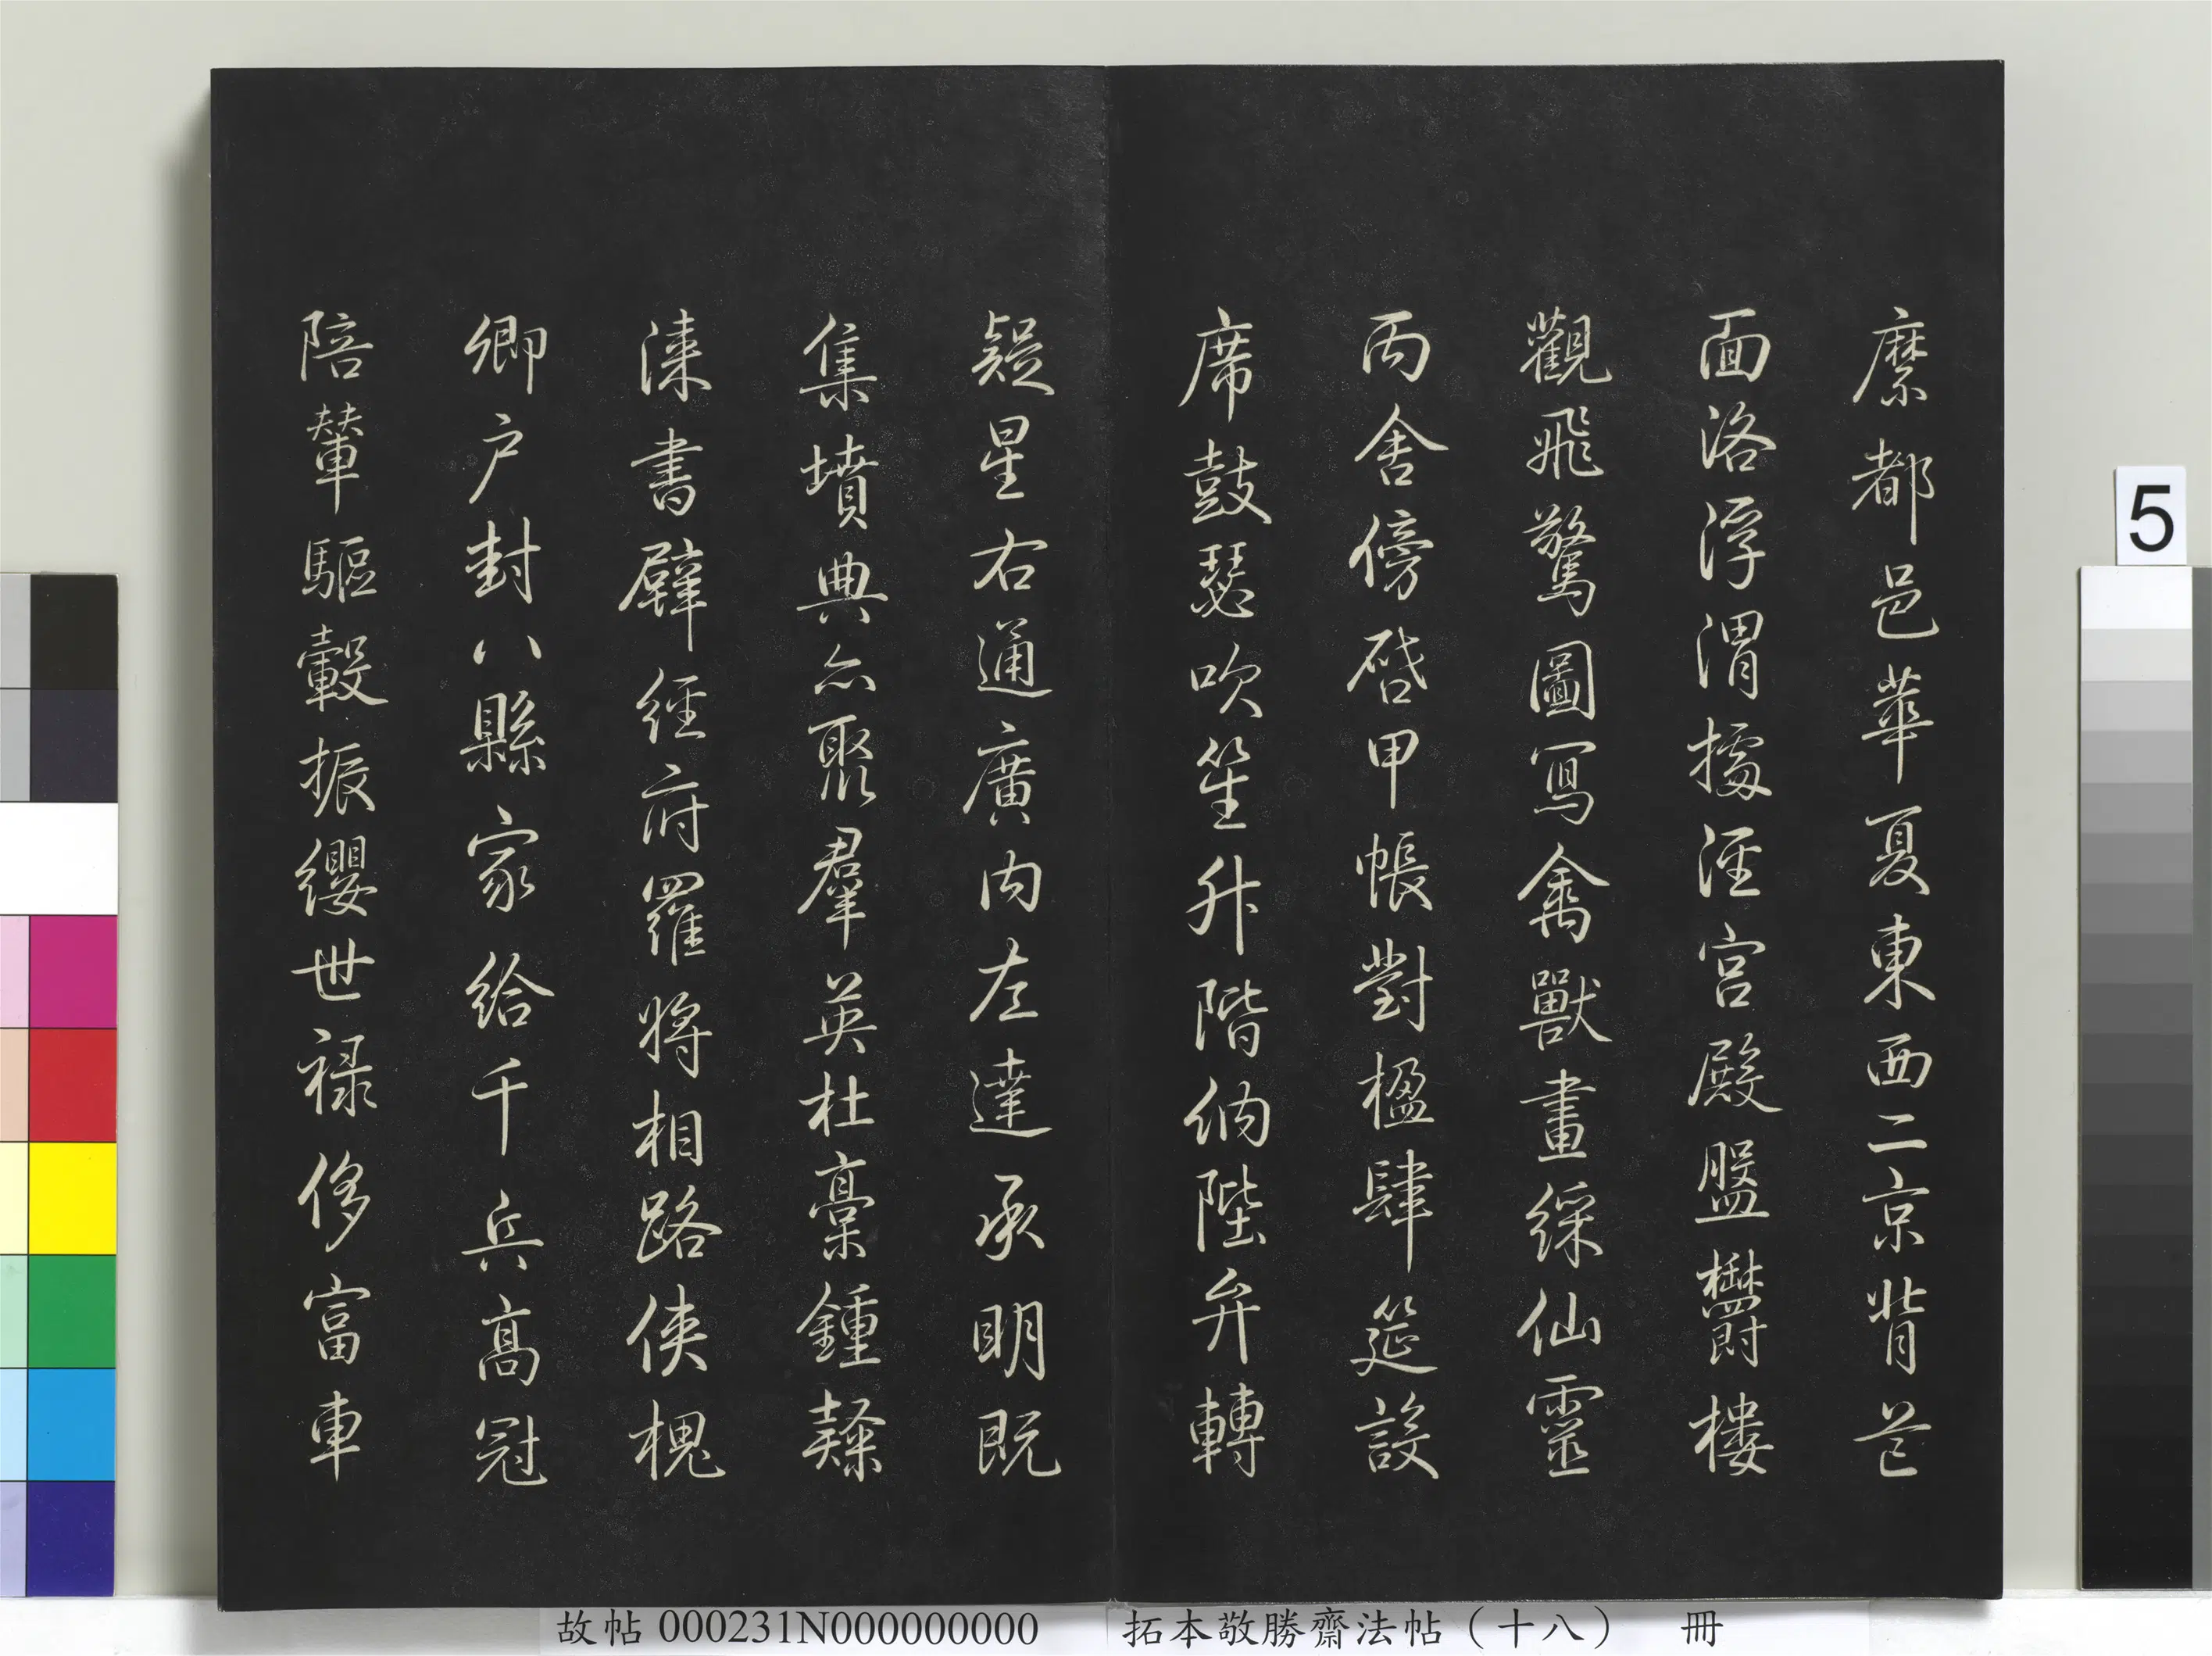 縻都邑華夏東西二京背芒
面洛浮渭據涇宮殿盤鬱樓
觀飛驚圖寫禽獸畫綵仙靈
丙舍傍啓甲帳對楹肆筵設
席鼓瑟吹笙升階納陛弁轉
疑星右通廣內左達承明既
集墳典亦聚群英杜稾鍾隸
漆書壁經府羅將相路俠槐
卿户封八縣家給千兵高冠
陪輦驅轂振纓世祿侈富車
故帖 000231N000000000 拓本敬勝齋法帖（十八） 冊
5